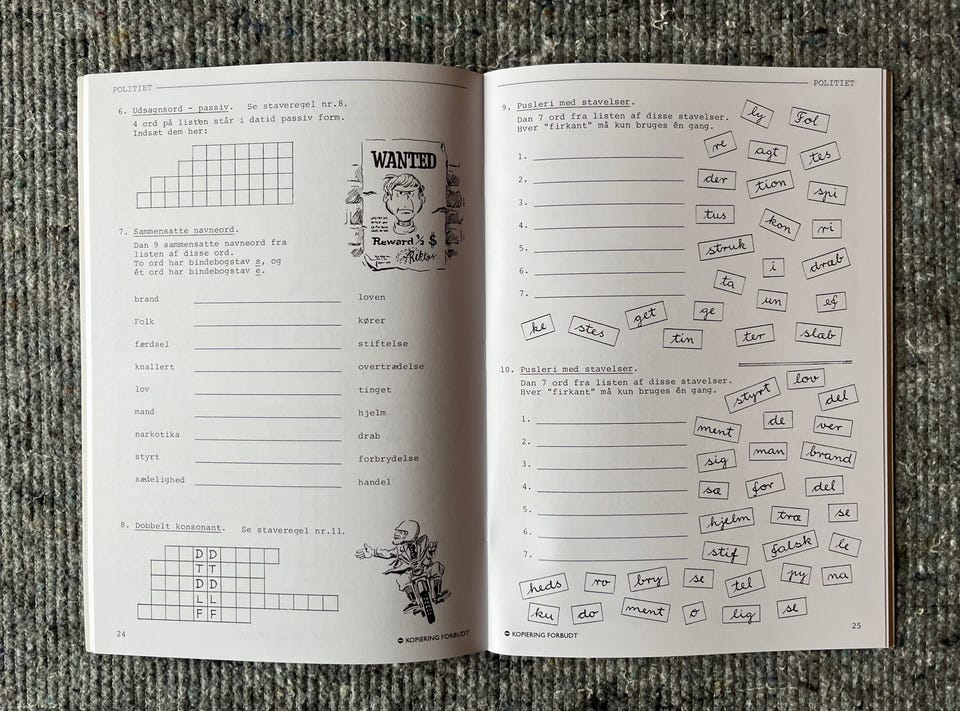 POLITIET
6. Udsagnsord - passiv. Se staveregel nr.8.
4 ord på listen står i datid passiv form.
Indsæt dem her:
WANTED
Reward ½ $
7. Sammensatte navneord.
Dan 9 sammensatte navneord fra
listen af disse ord.
To ord har bindebogstav s, og
ét ord har bindebogstav e.
brand loven
Folk kører
færdsel stiftelse
knallert overtrædelse
lov tinget
mand hjelm
narkotika drab
styrt forbrydelse
sædelighed handel
8. Dobbelt konsonant. Se staveregel nr.11.
D D
T T
D D
L L
F F
24
KOPIERING FORBUDT
POLITIET
9. Pusleri med stavelser.
Dan 7 ord fra listen af disse stavelser.
Hver "firkant" må kun bruges én gang.
ly Fol
re agt tes
1.
der tion spi
2.
3.
tus kon ri
4.
struk i dræb
5.
ta un ef
6.
7.
ke stes get ge tin ter slab
10. Pusleri med stavelser.
Dan 7 ord fra listen af disse stavelser.
Hver "firkant" må kun bruges én gang.
styrt lov del
1.
ment de ver
2.
sig man brand
3.
4.
sæ for del
5.
hjelm træ se
6.
stif falsk le
7.
heds ro bry se tel py na
ku do ment o lig se
KOPIERING FORBUDT
25